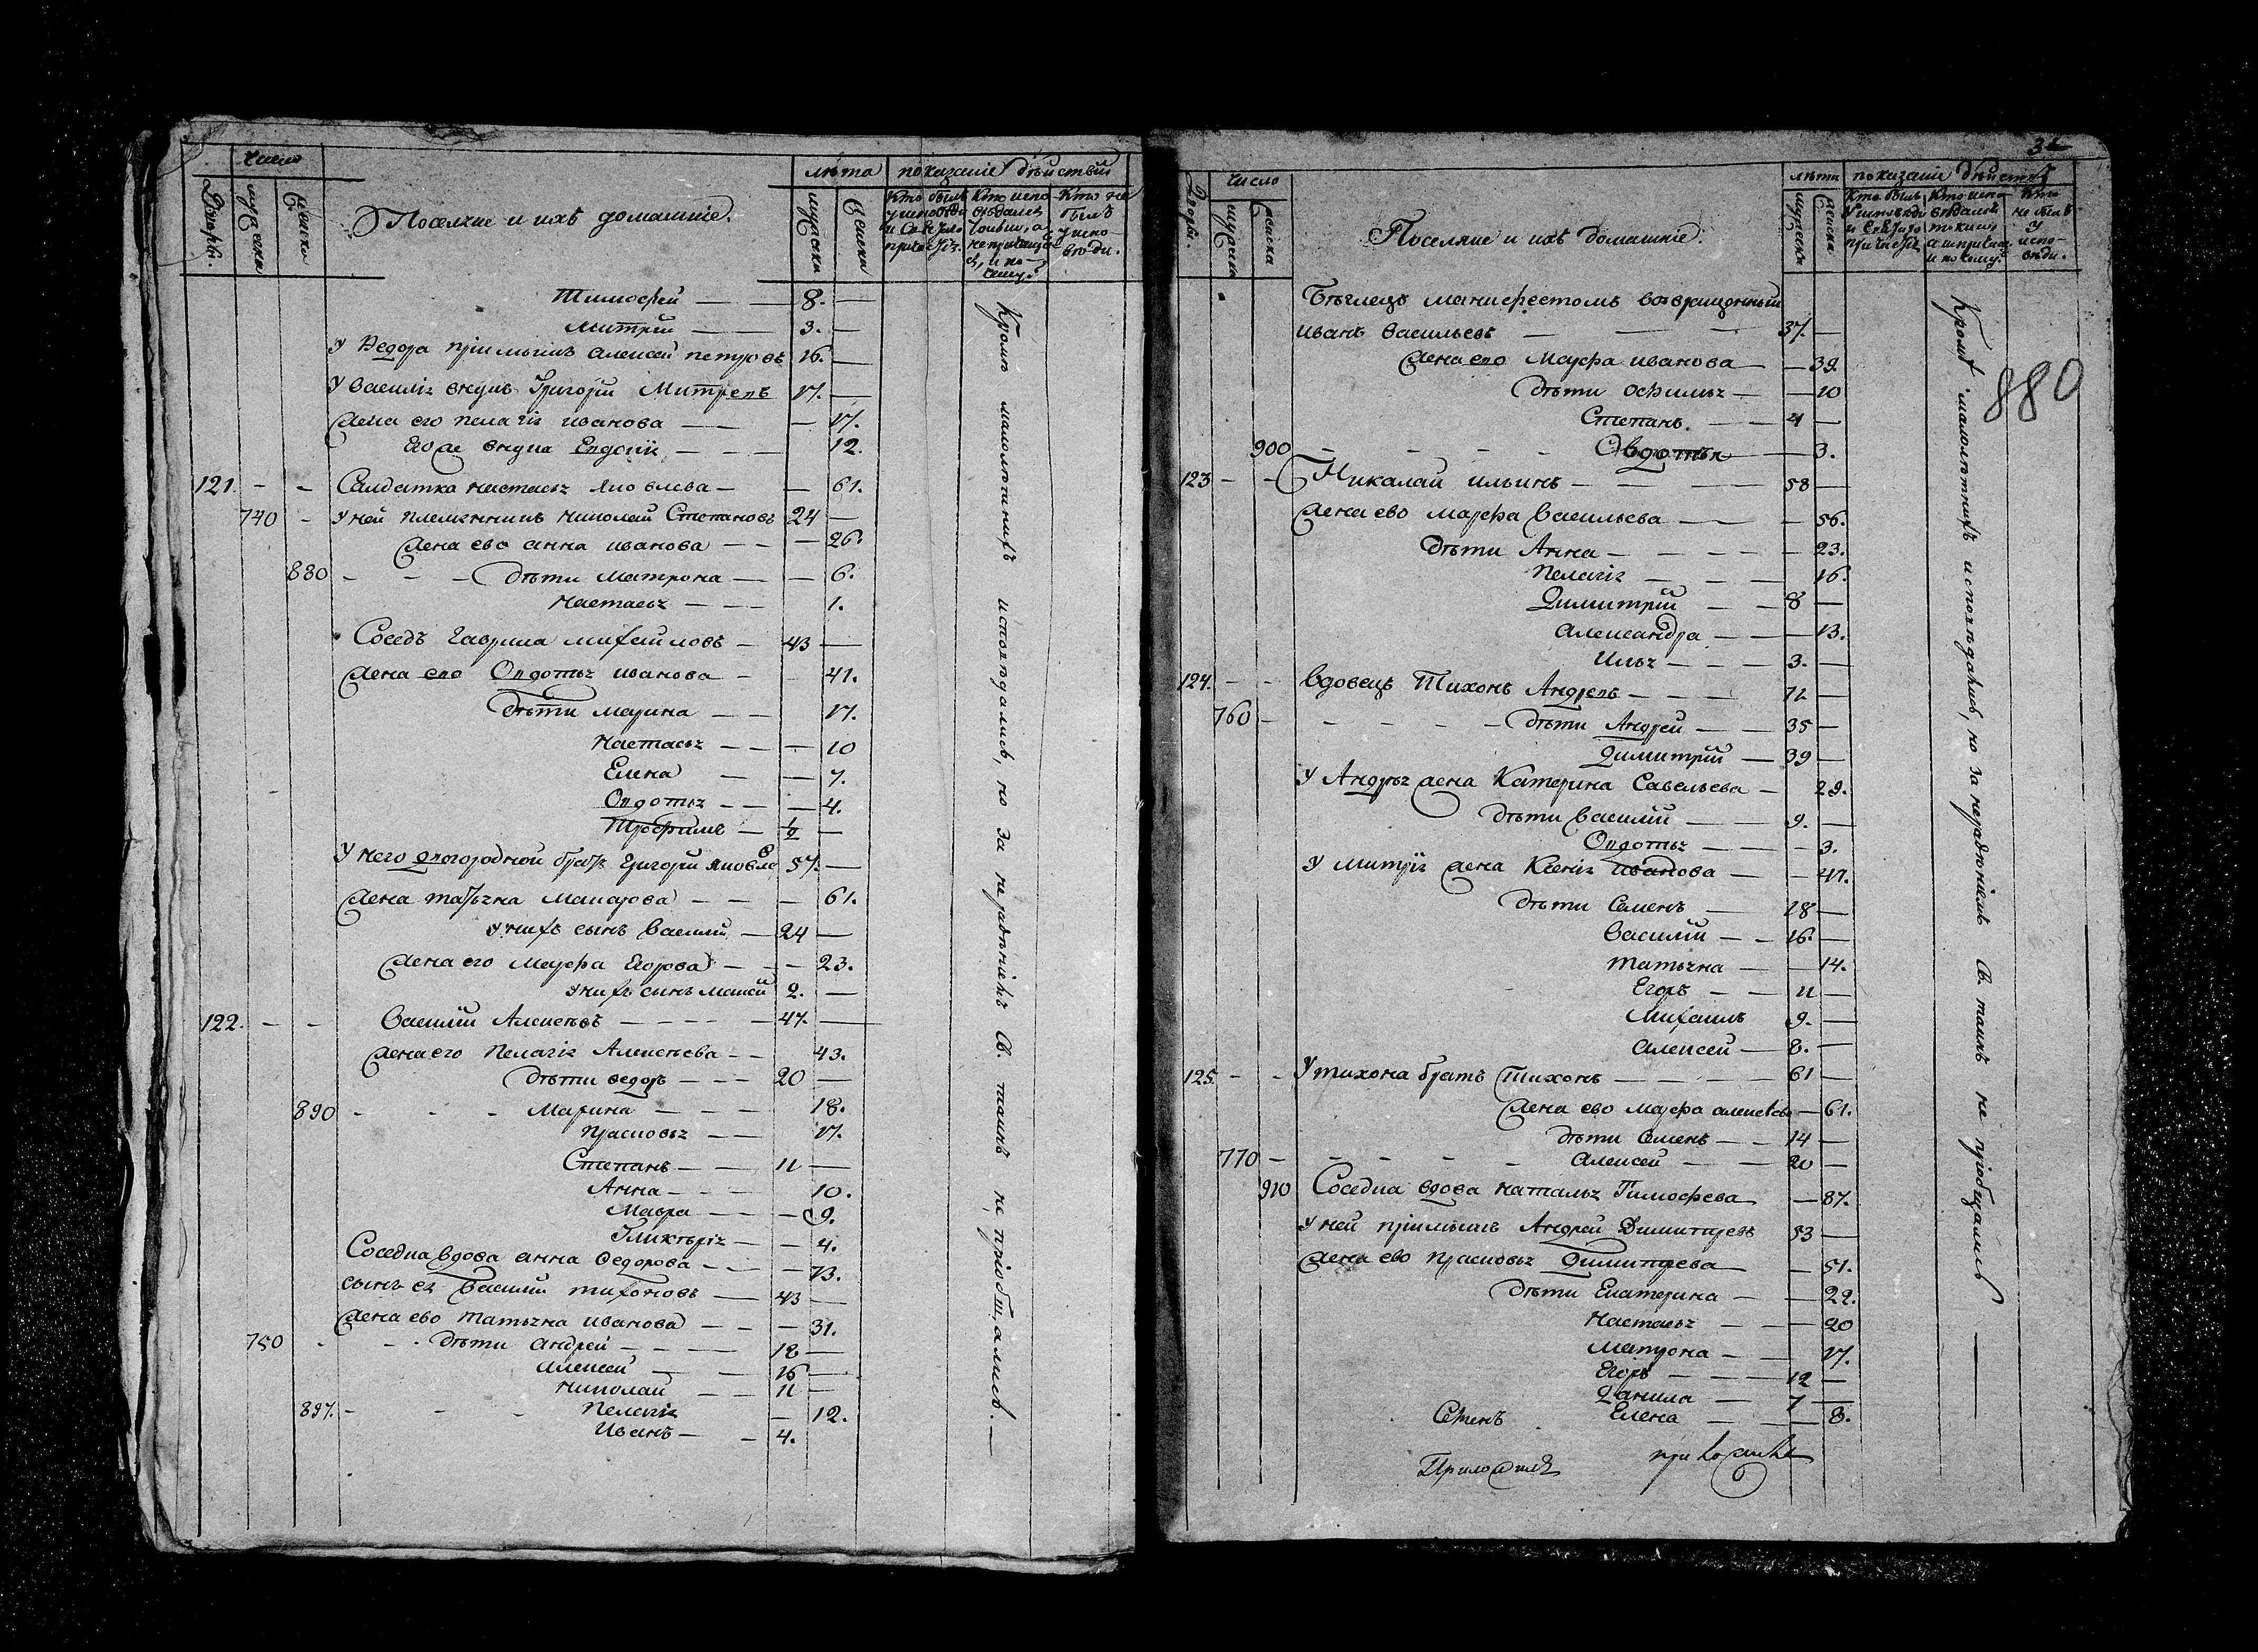 число
лѣта показаніе дѣйствій
Дворы. мужеска женска
Поселяне и ихъ домашніе.
мужеска женска
Кто былъ у исповѣди и Святаго прич
Кто испо вѣдался токмо, а не причаща и по чему.
Кто не былъ у испо вѣди.
Тимофей — — 8. —
Митрій — — 3. —
У Ѳедора пріимышъ Алексей петровъ 16. —
У Василія внукъ Григорій Митревъ 17. —
Жена его пелагія иванова — — — 17.
Егоже внука Евдокія — — — 12.
121. - - Салдатка настасья Яковлева — — 61.
740 - У ней племянникъ николай Степановъ 24 —
Жена ево анна иванова — — — 26.
880 - - - дѣти матрона — — 6.
настасья — — — 1.
Соседъ Гаврила михайловъ — 43 —
Жена ево Овдотья иванова — - 41.
дѣти марина — — 17.
настасья — — — 10
Елена — — 7.
Овдотья — — — 4.
Трофимъ — 1/2 —
У него двоюродной братъ Григорій яковле 57. —
Жена татьяна макарова — — — 61.
У нихъ сынъ Василий — 24 —
Жена его марфа Егорова — — — 23.
У нихъ сынъ 2. —
122. - - Василий Алексѣевъ — — — — 47. —
Жена его пелагія Алексѣева — — 43.
дѣти ѳедоръ — — — 20 —
890 - - - Марина — — — 18.
прасковья — — 17.
Степанъ — — 11 —
Анна — — — 10.
Мавра — — — 9.
Гликерія — — 4.
Соседка вдова анна Ѳедорова — — — 73.
сынъ ея Василий тихоновъ — 43 —
Жена ево татьяна иванова — — — 31.
750 - - - дѣти андрей — — — 18 —
алексей — — 16 —
николай — — 11 —
897. - - - Пелагія — 12.
Иванъ — — 4.
Кромѣ малолѣтнихъ исповѣдались, но за нерадѣніемъ Св. таинъ не пріобщались. —
число
лѣта показаніе дѣйствъ
Дворы. мужеска женска
Поселяне и ихъ домашніе.
мужеска женска
Кто былъ у исповѣди и Святаго причастія
Кто испо вѣдался токмо а не причащ и по чему.
Кто не былъ у испо- вѣди.
Бѣглецъ манифестомъ возвращенный
иванъ Васильевъ — — — 37. —
Жена ево Марфа иванова — — 39.
дѣти — — 10
Степанъ. — — 4 —
900 - - - - Овдотья — — 3.
123 - - Никалай ильинъ — — — 58 —
Жена ево марфа Васильева — — - 56.
дѣти Анна — — — — 23.
Пелагія — — — 16.
Димитрій — — 8 —
Александра — — — 13.
Илья — — — 3. —
124. - - Вдовецъ Тихонъ Андревъ — — —
760 - - - - - дѣти Андрей — — 35 —
Димитрій — 39 —
У Андрея жена Катерина Савельева — 29.
дѣти Василий — — 9. —
Овдотья — — - 3.
У митрія жена Ксенія иванова — - 47.
дѣти Семенъ — 18 —
Василий — — 16. —
татьяна — — 14.
Егоръ — — 11 —
Михаилъ 9. —
Алексей — 8. —
125. - - У тихона братъ Тихонъ — — — — 61 —
Жена ево марфа алексѣева — 61.
дѣти Семенъ — — 14 —
770 - - - - - Алексей — — 20 —
910 Соседка вдова наталья Тимофева — 87.
У ней пріимышъ Андрей Димитревъ 53 —
Жена ево прасковья Димитрева — 51.
дѣти Екатерина — — 22.
настасья — — — 20
Матрона — — 17.
Егоръ — — — 12 —
Данила — — 7 —
Елена — — — 8.
Кромѣ малолѣтнихъ исповѣдались, но за нерадѣніемъ Св. таинъ не пріобщались —
880
Семенъ
Приложилъ